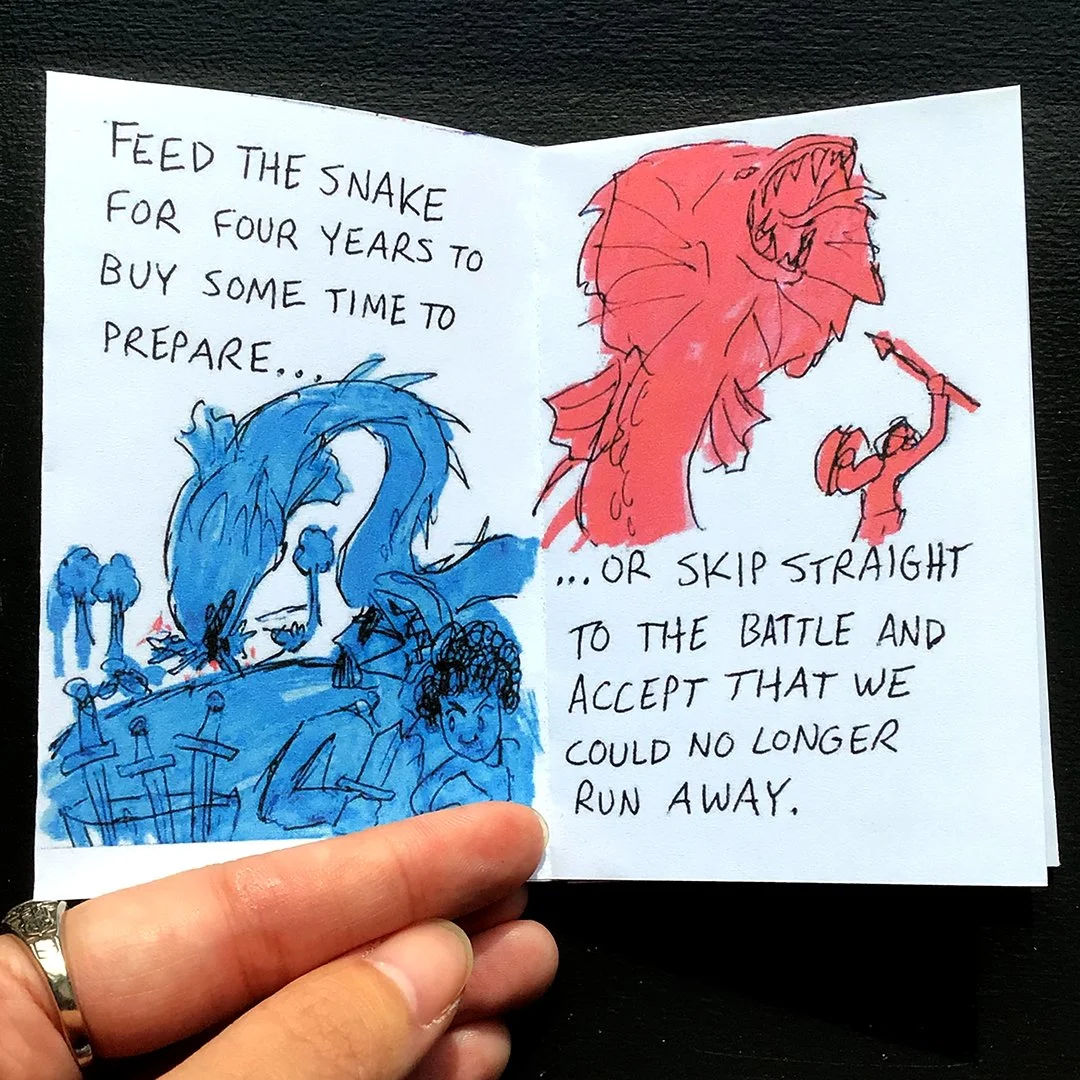 FEED THE SNAKE
FOR FOUR YEARS TO
BUY SOME TIME TO
PREPARE...
...OR SKIP STRAIGHT
TO THE BATTLE AND
ACCEPT THAT WE
COULD NO LONGER
RUN AWAY.